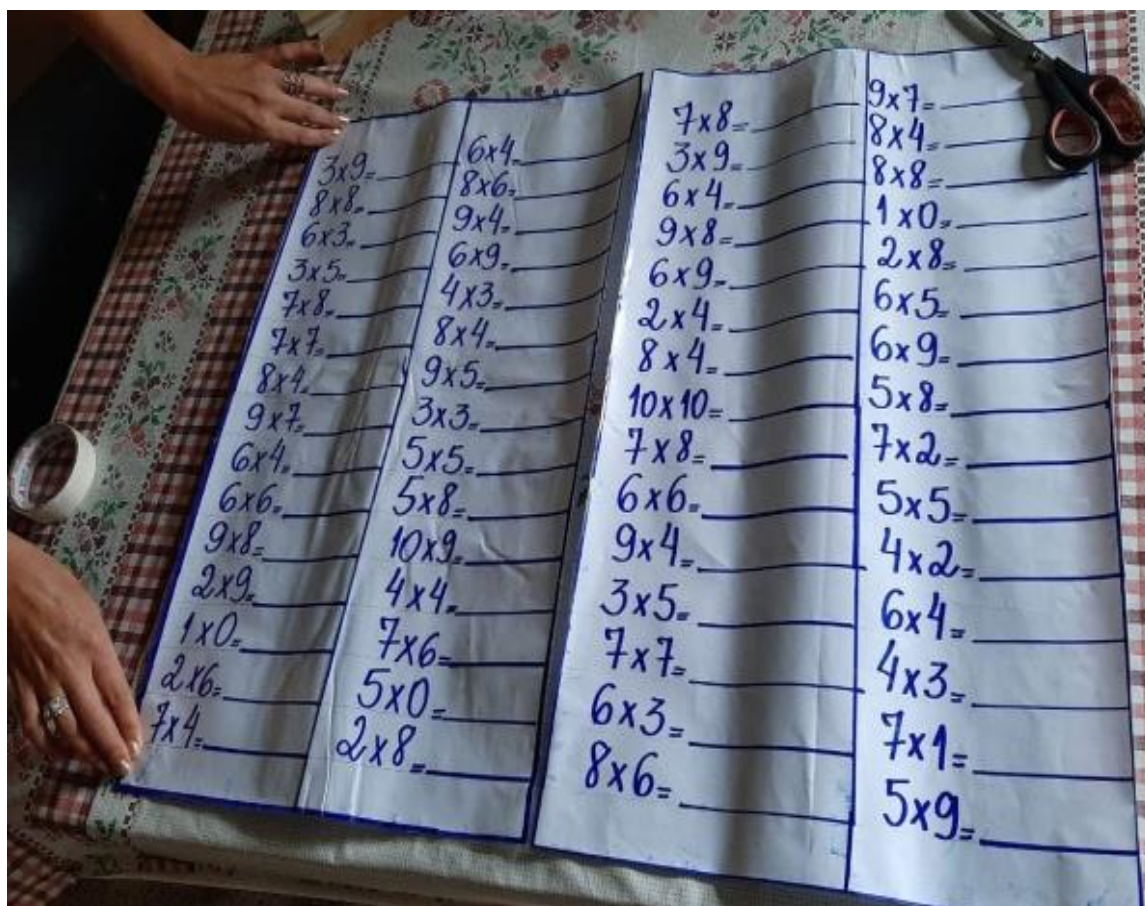 3x9=
8x8=
6x3=
3x5=
7x8=
7x7=
8x4=
9x7=
6x4=
6x6=
9x8=
2x9=
1x0=
2x6=
7x4=
6x4=
8x6=
9x4=
6x9=
4x3=
8x4=
9x5=
3x3=
5x5=
5x8=
10x9=
4x4=
7x6=
5x0=
2x8=
7x8=
3x9=
6x4=
9x8=
6x9=
2x4=
8x4=
10x10=
7x8=
6x6=
9x4=
3x5=
7x7=
6x3=
8x6=
9x7=
8x4=
8x8=
1x0=
2x8=
6x5=
6x9=
5x8=
7x2=
5x5=
4x2=
6x4=
4x3=
7x1=
5x9=